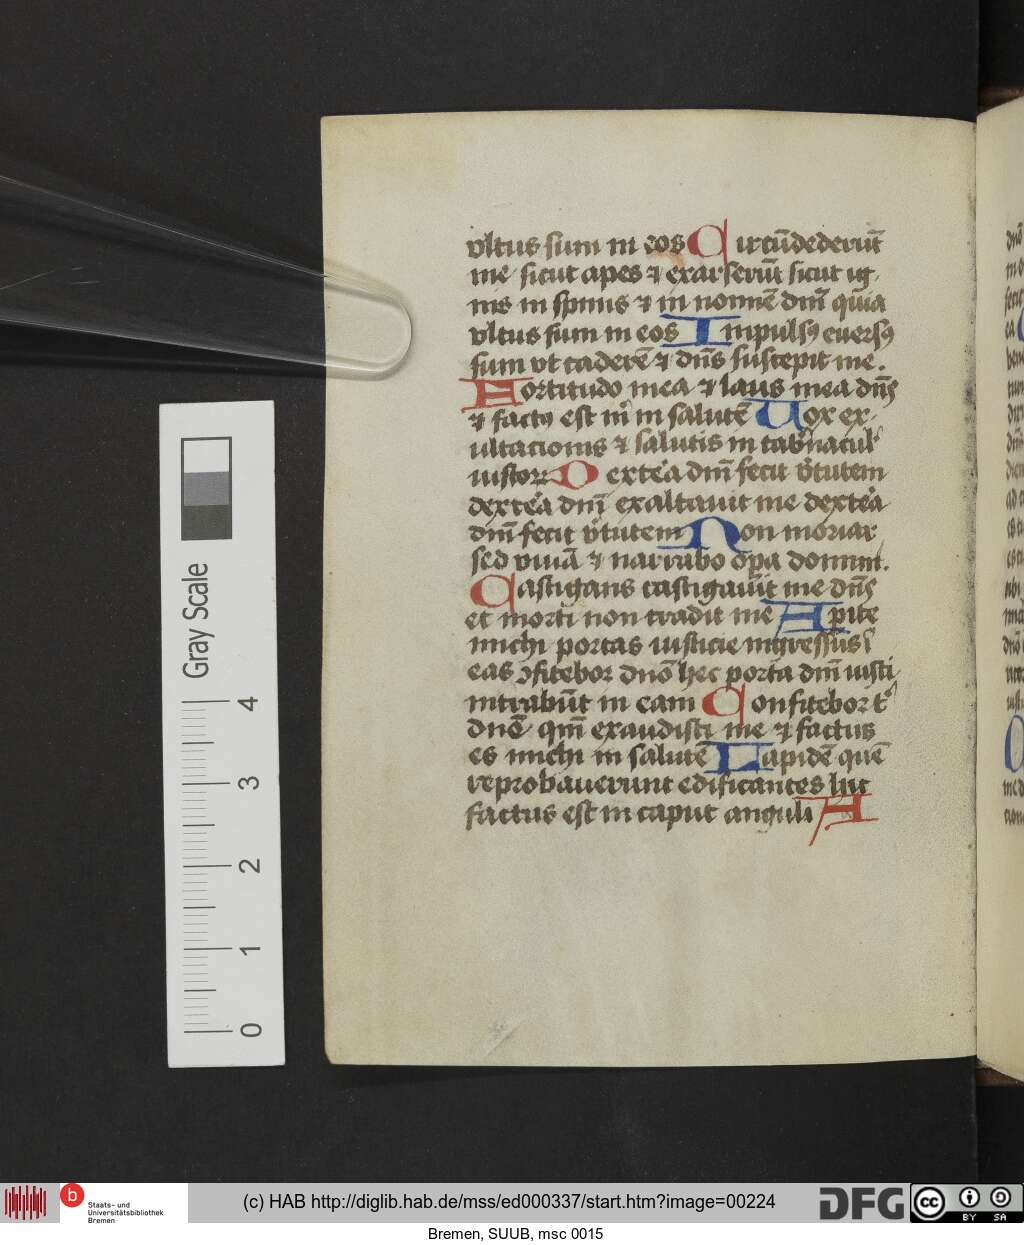 vltus sum in eos Circūdederūt
me sicut apes ⁊ exarserūt sicut ig
nis in spinis ⁊ in nomīe dm̄ quia
vltus sum in eos Impulsꝰ euersꝰ
sum vt caderē ⁊ dn̄s suscepit me.
Fortitudo mea ⁊ laus mea dn̄s
⁊ factꝰ est mͥ in salutē Uox ex
ultacionis ⁊ salutis in tab̄nacul
iustoꝝ Dext̄a dm̄ fecit v̄tutem
dext̄a dm̄ exaltauit me dext̄a
dm̄ fecit v̄tutem Non moriar
sed viuā ⁊ narrabo oꝑa domini.
Castigans castigauit me dn̄s
et morti non tradit me Apite
michi portas iusticie ingressus ī
eas ↄfitebor dnō hec porta dm̄ iusti
intrabūt in eam Confitebor tͥ
dnē qm̄ exaudisti me ⁊ factus
es michi in salutē Lapidē quē
reprobauerunt edificantes hic
factus est in caput anguli A
Gray Scale
4
3
2
1
0
b
Staats- und
Universitätsbibliothek
Bremen
(c) HAB http://diglib.hab.de/mss/ed000337/start.htm?image=00224
DFG
cc
BY SA
Bremen, SUUB, msc 0015